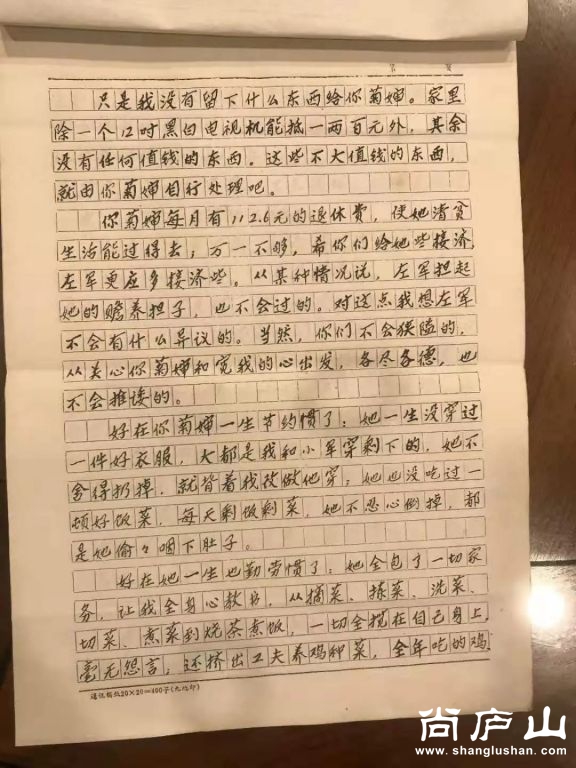 第 页
只是我没有留下什么东西给你菊婶。家里
除一个12吋黑白电视机能抵一两百元外，其余
没有任何值钱的东西。这些不大值钱的东西，
就由你菊婶自行处理吧。
你菊婶每月有112.6元的退休费，使她清贫
生活能过得去；万一不够，希你们给她些接济，
左军更应多接济些。从某种情况说，左军担起
她的赡养担子，也不会过的。对这点我想左军
不会有什么异议的。当然，你们不会狭隘的，
从关心你菊婶和宽我的心出发，各尽各德，也
不会推诿的。
好在你菊婶一生节约惯了；她一生没穿过
一件好衣服，大都是我和小军穿剩下的，她不
舍得扔掉，就背着我改做他穿；她也没吃过一
顿好饭菜，每天剩饭剩菜，她不忍心倒掉，都
是她偷々咽下肚子。
好在她一生也勤劳惯了；她全包了一切家
务，让我全身心教书，从摘菜、拣菜、洗菜、
切菜、煮菜到烧茶煮饭，一切全揽在自己身上，
毫无怨言；还挤出工夫养鸡种菜，全年吃的鸡
20×20=400字
尚庐山
www.shanglushan.com